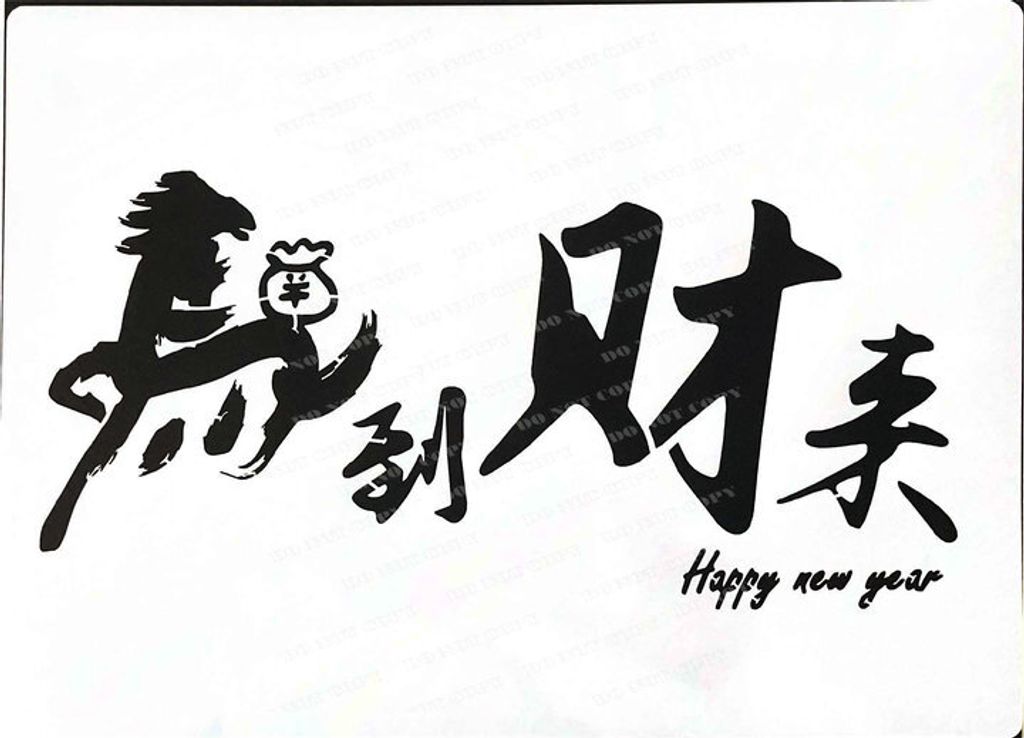 馬到财来
Happy new year
DO NOT COPY